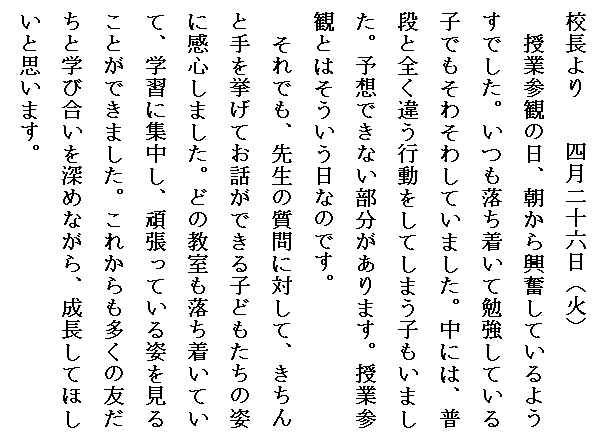 校長より　　四月二十六日（火）
　授業参観の日、朝から興奮しているよう
すでした。いつも落ち着いて勉強している
子でもそわそわしていました。中には、普
段と全く違う行動をしてしまう子もいまし
た。予想できない部分があります。授業参
観とはそういう日なのです。
　それでも、先生の質問に対して、きちん
と手を挙げてお話ができる子どもたちの姿
に感心しました。どの教室も落ち着いてい
て、学習に集中し、頑張っている姿を見る
ことができました。これからも多くの友だ
ちと学び合いを深めながら、成長してほし
いと思います。